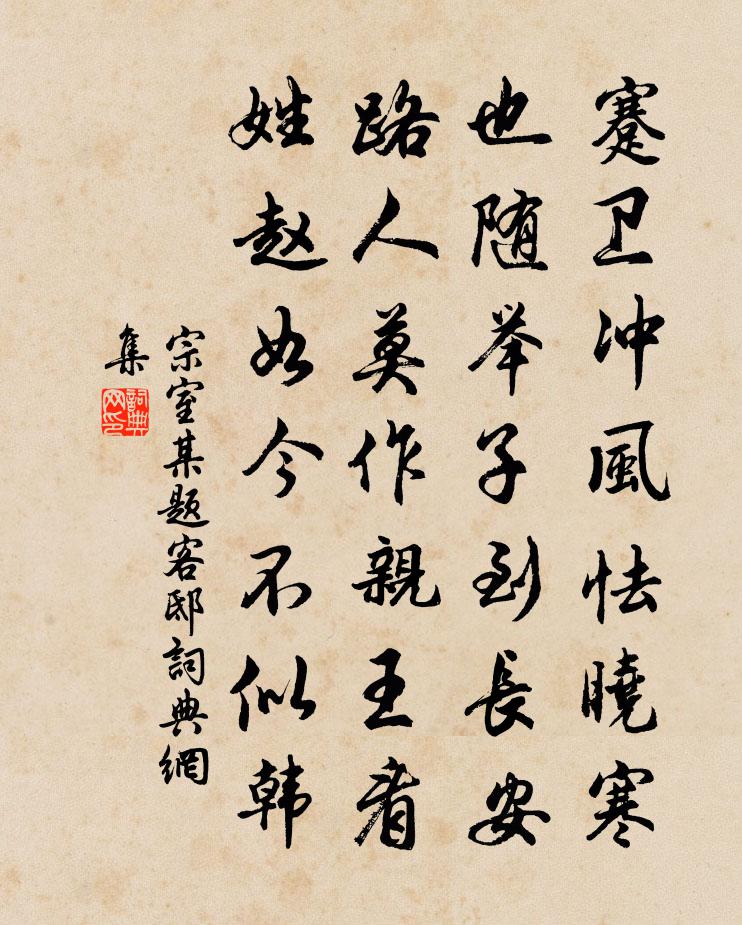 蹇卫冲風怯曉寒
也随举子到長安
路人莫作親王看
姓赵如今不似韩
宗室某题客邸詞典網
集
詞典网印